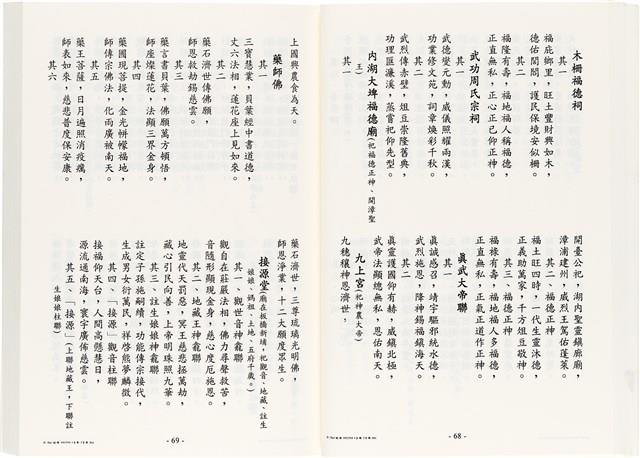 木柵福德祠
其一
福庇鄉里，旺土豐財興如木，
德佑閭閻，護民保境安似柵。
其二
福隆有壽，福地福人稱福德，
正直無私，正心正己仰正神。
武功周氏宗祠
其一
武德燮元勳，威儀照耀兩漢，
功業修文苑，詞章煥彩千秋。
其二
武烈傳赤壁，俎豆崇隆舊典，
功理匯濂溪，蒸嘗祀仰先型。
內湖大埤福德廟(祀福德正神、開漳聖
王)
其一
開臺公祀，湖內聖靈鎮廊廟，
漳浦建州，威烈正駕佑蓬萊。
其二、福德正神
福土旺四時，一代生靈沐德，
正義助萬家，千方俎豆敬神。
其三、福德正神
福祿有壽，福地福人多福德，
正直無私，正氣正道作正神。
真武大帝聯
其一
真誠感召，靖宇驅邪統水德，
武烈施恩，降神賜福鎮海天。
其二
真靈護國仰有赫，威鎮北極，
武帝法顯總無私，恩佑南天。
九上宮(祀神農大帝)
九穗穰神恩濟世，
- 68 -
上國興農食為天。
藥師佛
其一
三寶慧業，貝葉經中書道德，
丈六法相，蓮花座上見如來。
其二
藥石濟世傳佛願，
師恩救劫錫慈雲。
其三
藥言書貝葉，佛願萬方頓悟，
師座燦蓮花，法顯三界金身。
其四
藥國現菩提，金光帡幪福地，
師傳宗佛法，化雨廣被南天。
其五
藥王菩薩，日月遍照消疫癘，
師表如來，慈悲普度保安康。
其六
藥石濟世，三尊琉璃光明佛，
師恩淨業，十二大願度眾生。
接源堂(廟在板橋新埔，祀觀音、地藏、註生
娘娘、媽祖、土地、五府千歲。)
其一、觀世音神龕聯
觀自在莊嚴法相，佛力尋聲救苦，
音隨形顯現金身，慈心度厄施恩。
其二、地藏王神龕聯
地靈代天罰惡，冥王慈悲拯萬劫，
藏心引民向善，上帝明珠照九華。
其三、註生娘娘神龕聯
註定子孫施嗣續，功能傳宗接代，
生成男女衍萬民，祥呈熊夢麟徵。
其四、「接源」觀音柱聯
接福仰天台，人間高懸慧日，
源流通南海，寰宇廣佈慈雲。
其五、「接源」(上聯地藏王，下聯註
生娘娘柱聯)
- 69 -